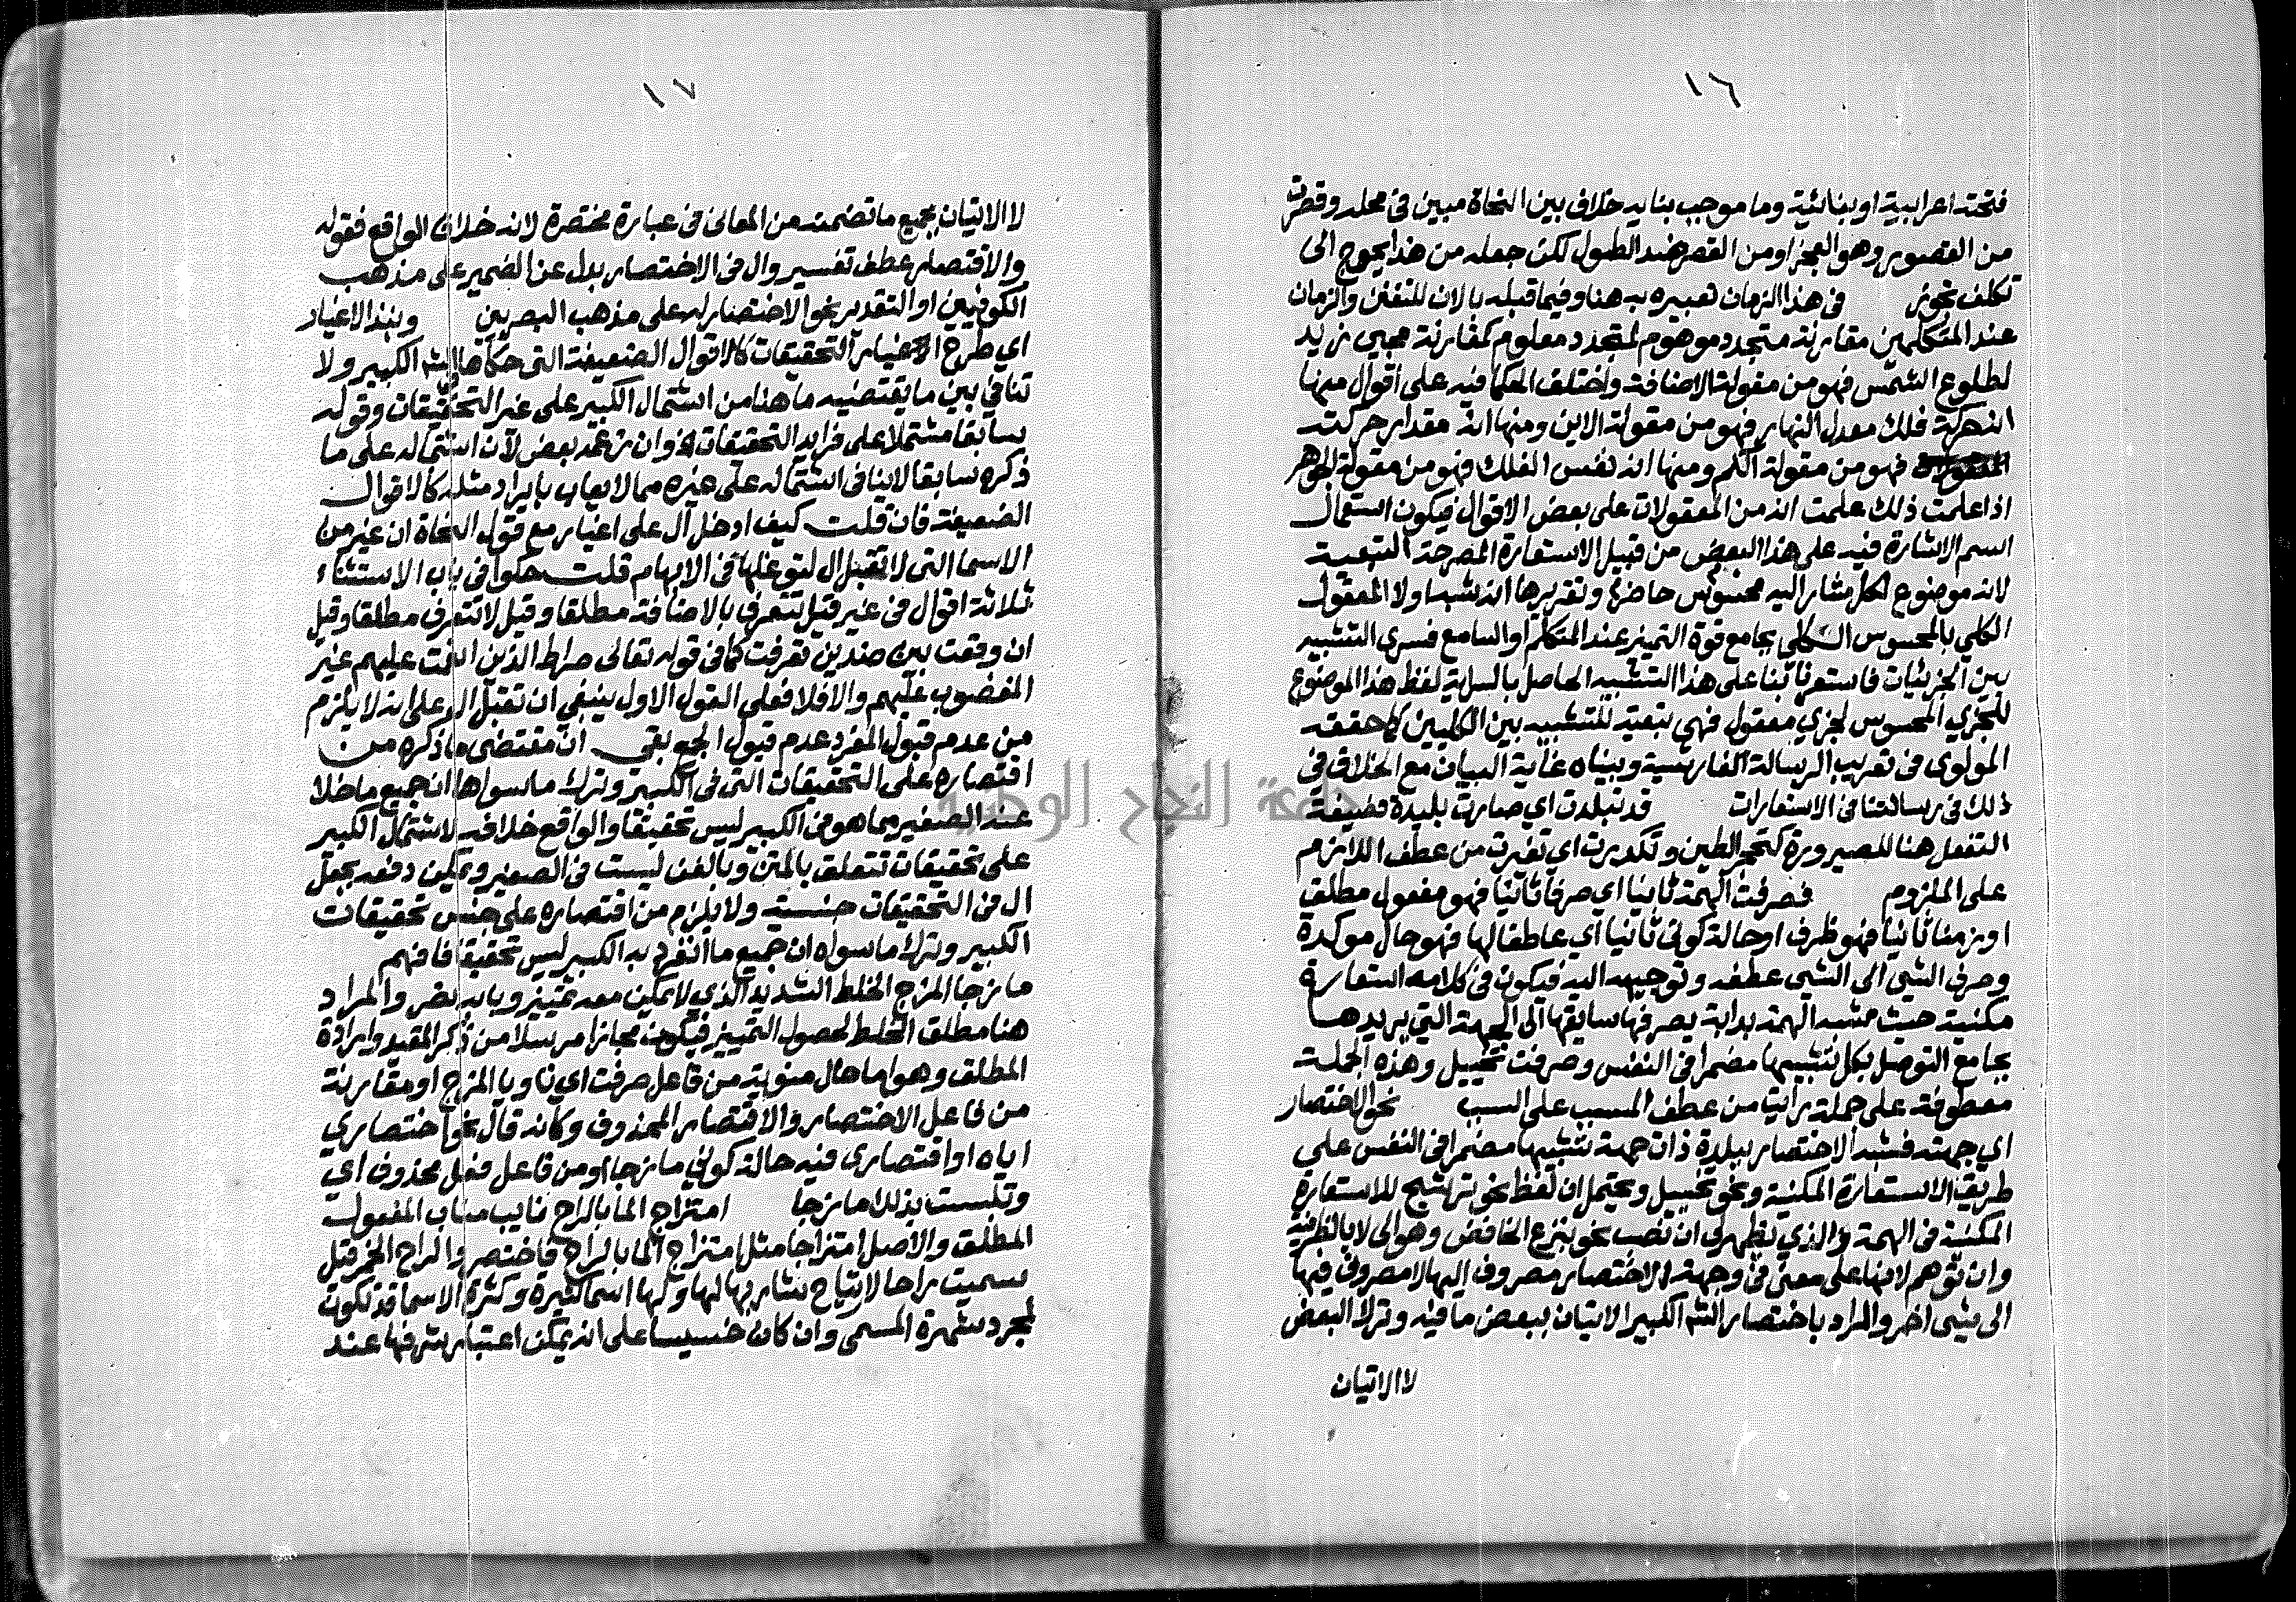 ١٦
فتحته اعرابية او بنائية وما موجب بنايه خلاف بين النحاة مبين في محله وقصرت
من القصور وهو العجز او من القصر ضد الطول لكن جعله من هذا يحوج الى
تكلف تجوز في هذا الزمان تعبيره به هنا وفيما قبله بالان للتفنن والزمان
عند المتكلمين مقارنة متجدد موهوم لمتجدد معلوم كمقارنة مجيى زيد
لطلوع الشمس فهو من مقولة الاضافة واختلف الحكما فيه على اقوال منها
انه حركة فلك معدل النهار فهو من مقولة الاين ومنها انه مقدار حركت
فهو من مقولة الكم ومنها انه نفس الفلك فهو من مقولة الجوهر
اذا علمت ذلك علمت انه من المعقولات على بعض الاقوال فيكون استعمال
اسم الاشارة فيه على هذا البعض من قبيل الاستعارة المصرحة التبعية
لانه موضوع لكل مشار اليه محسوس حاضر وتقريرها انه شبه اولا المعقول
الكلي بالمحسوس الكلي بجامع قوة التميز عند المتكلم او السامع فسرى التشبير
بين الجزئيات فاستعرنا بنا على هذا التشبيه الحاصل بالسراية لفظ هذا الموضوع
للجزي المحسوس لجزي معقول فهي تبعية للتشبيه بين الكليين كما حققه
المولوى في تعريب الرسالة الفارسية وبيناه غاية البيان مع الخلاف في
ذلك في رسالتنا في الاستعارات قد تبلدت اي صارت بليدة ضعيفة
التفعل هنا للصيرورة كتحجر الطين وتكدرت اي تغيرت من عطف اللازم
على الملزوم فصرفت الهمة ثانيا اي صرفا ثانيا فهو مفعول مطلق
او زمنا ثانيا فهو ظرف او حالة كوني ثانيا اي عاطفا لها فهو حال موكدة
وصرف الشي الى الشي عطفه وتوجيهه اليه فيكون في كلامه استعارة
مكنية حيث شبه الهمة بدابة يصرفها سايقها الى الجهة التي يريدها
بجامع التوصل بكل تشبيها مضمرا في النفس وصرفت تخييل وهذه الجملة
معطوفة على جملة رايت من عطف المسبب على السبب نحو الاختصار
اي جهته فشبه الاختصار ببلدة ذات جهة تشبيها مضمرا في النفس على
طريق الاستعارة المكنية ونحو تخييل ويحتمل ان لفظ نحو ترشيح للاستعارة
المكنية في الهمة والذي يظهر لي ان نصب نحو بنزع الخافض وهو الى لا بالظرفية
وان توهم لانها على معنى في وجهة الاختصار مصروف اليها لا مصروف فيها
الى شى اخر والمراد باختصار الشر الكبير الاتيان ببعض ما فيه وترك البعض
لا الاتيان
١٧
لا الاتيان بجميع ما تضمنه من المعاني في عبارة مختصرة لانه خلاف الواقع فقوله
والاقتصار عطف تفسير وال في الاختصار بدل عن الضمير على مذهب
الكوفيين او التقدير نحو الاختصار له على مذهب البصريين ونبذ الاغيار
اي طرح الاغيار التحقيقات كالاقوال الضعيفة التي حكاها الشر الكبير ولا
تنافي بين ما يقتضيه ما هنا من اشتمال الكبير على غير التحقيقات وقوله
سابقا مشتملا على فرايد التحقيقات الخ وان زعمه بعض لان اشتماله على ما
ذكره سابقا لا ينافي اشتماله على غيره مما لا يعاب بايراد مثله كالاقوال
الضعيفة فان قلت كيف ادخل ال على اغيار مع قول النحاة ان غير من
الاسما التي لا تقبل ال لتوغلها في الابهام قلت حكوا في باب الاستثناء
ثلاثة اقوال في غير قيل تتعرف بالاضافة مطلقا وقيل لا تتعرف مطلقا وقيل
ان وقعت بين ضدين تعرفت كما في قوله تعالى صراط الذين انعمت عليهم غير
المغضوب عليهم والا فلا فعلى القول الاول ينبغي ان تقبل ال على انه لا يلزم
من عدم قبول المفرد عدم قبول الجمع بقي ان مقتضى ما ذكره من
اقتصاره على التحقيقات التي في الكبير وترك ما سواها ان جميع ما خلا
عنه الصغير مما هو في الكبير ليس تحقيقا والواقع خلافه لاشتمال الكبير
على تحقيقات تتعلق بالمتن وبالفن ليست في الصغير ويمكن دفعه بجعل
ال في التحقيقات جنسية ولا يلزم من اقتصاره على جنس تحقيقات
الكبير وترك ما سواه ان جميع ما انفرد به الكبير ليس تحقيقا فافهم
مازجا المزج الخلط الشديد الذي لا يمكن معه تمييز وبابه نصر والمراد
هنا مطلق الخلط لحصول التمييز فيكون مجازا مرسلا من ذكر المقيد وارادة
المطلق وهو اما حال منوية من فاعل صرفت اي ناويا المزج او مقارنة
من فاعل الاختصار والاقتصار المحذوف وكانه قال نحو اختصاري
اياه او اقتصارى فيه حالة كوني مازجا او من فاعل فعل محذوف اي
وتلبست بذلك مازجا امتزاج الما بالراح نايب مناب المفعول
المطلق والاصل امتزاجا مثل امتزاج الما بالراح فاختصر والراح الخمر قيل
سميت راحا لارتياح شاربها لها ولها اسما كثيرة وكثرة الاسما قد تكون
لمجرد شهرة المسمى وان كان خسيسا على انه يمكن اعتبار شرفها عند
جامعة النجاح الوطنية